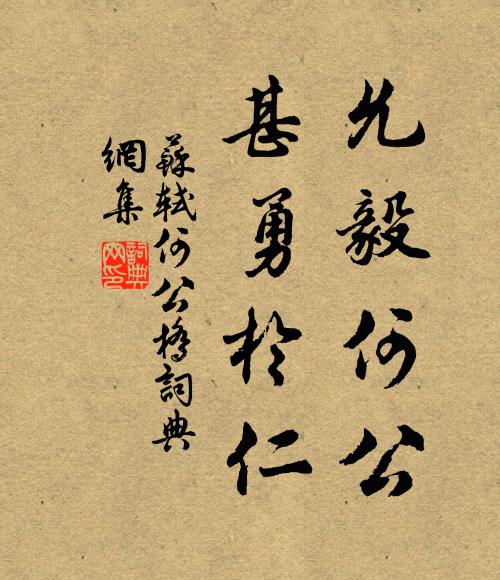 允毅何公
甚勇於仁
蘇軾何公橋詞典
網集
詞典网印